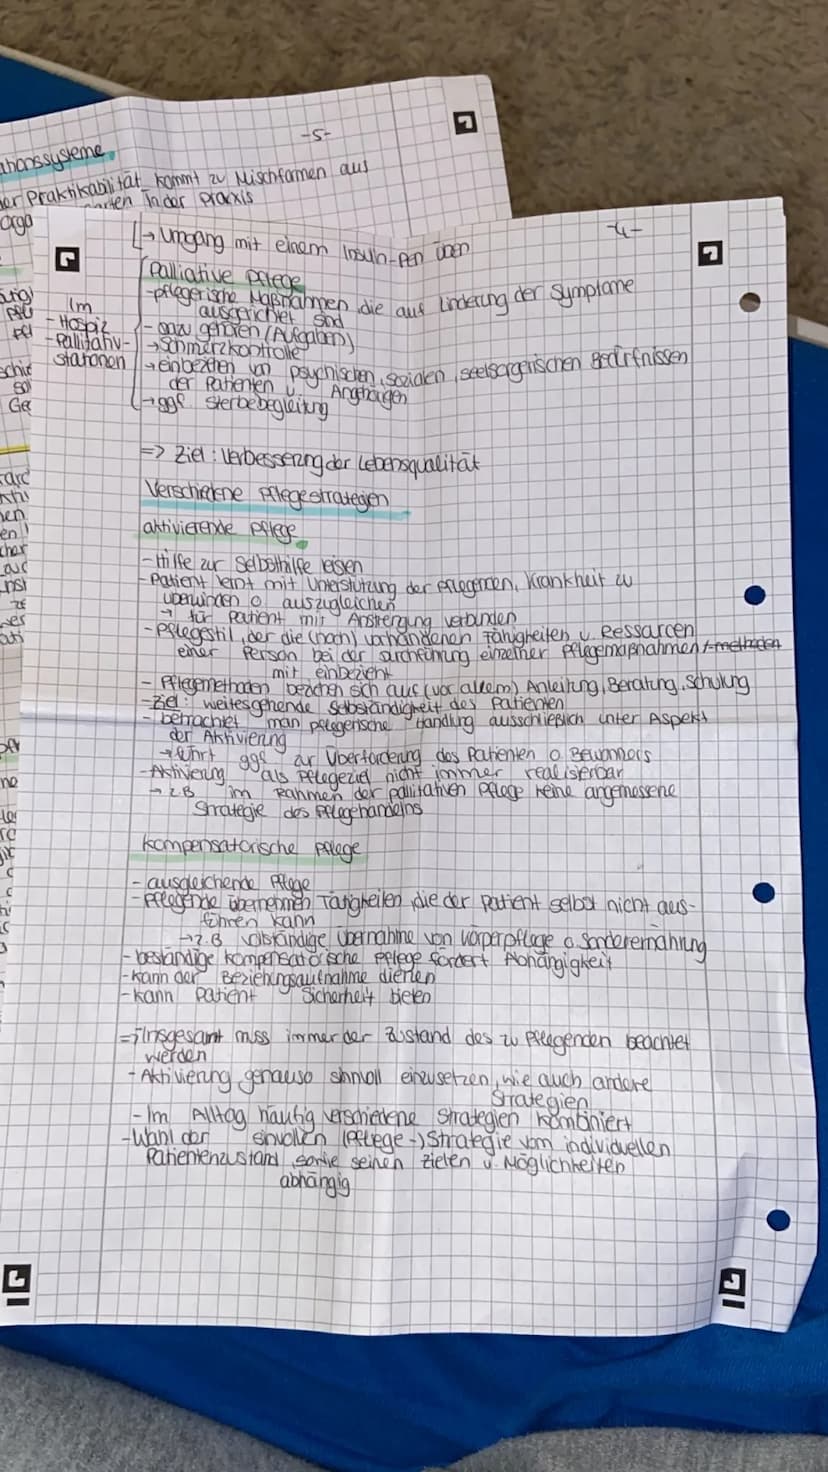 -5-
ationssysteme
er Praktikabilität kommt zu Mischformen aus
in der Praxis
-4-
→ Umgang mit einem Insulin-Pen üben
Palliative Pflege
-pflegerische Maßnahmen, die auf Linderung der Symptome
ausgerichtet sind
Im
- Hospiz
- Pallitativ-
stationen
- dazu gehören (Aufgaben)
→ Schmerzkontrolle
→ einbeziehen von psychischen, sozialen, seelsorgerischen Bedürfnissen
der Patienten u. Angehörigen
→ ggf. Sterbebegleitung
=> Ziel: Verbesserung der Lebensqualität
Verschiedene Pflegestrategien
aktivierende Pflege
- Hilfe zur Selbsthilfe leisten
- Patient lernt mit Unterstützung der Pflegenden, Krankheit zu
überwinden o. auszugleichen
→ für Patient mit Anstrengung verbunden
- Pflegestil, der die (noch) vorhandenen Fähigkeiten u. Ressourcen
einer Person bei der durchführung einzelner Pflegemaßnahmen /-methoden
mit einbezieht
- Pflegemethoden beziehen sich auf (vor allem) Anleitung, Beratung, Schulung
- Ziel: weitesgehende Selbständigkeit des Patienten
- betrachtet man pflegerische Handlung ausschließlich unter Aspekt
der Aktivierung
→ führt ggf. zur Überforderung des Patienten o. Bewohners
- Aktivierung als Pflegeziel nicht immer realisierbar
→ z.B im Rahmen der pallitativen Pflege keine angemessene
Strategie des Pflegehandelns
kompensatorische Pflege
- ausgleichende Pflege
- Pflegende übernehmen Tätigkeiten, die der Patient selbst nicht aus-
führen kann
→ z.B vollständige Übernahme von Körperpflege o. Sonderernährung
- beständige kompensatorische Pflege fördert Abhängigkeit
- kann der Beziehungsaufnahme dienen
- kann Patient Sicherheit bieten
=> Insgesamt muss immer der Zustand des zu Pflegenden beachtet
werden
- Aktivierung genauso sinnvoll einzusetzen, wie auch andere
Strategien
- Im Alltag häufig verschiedene Strategien kombiniert
- Wahl der sinvollen (Pflege-) Strategie vom individuellen
Patientenzustand, sowie seinen Zielen u. Möglichkeiten
abhängig